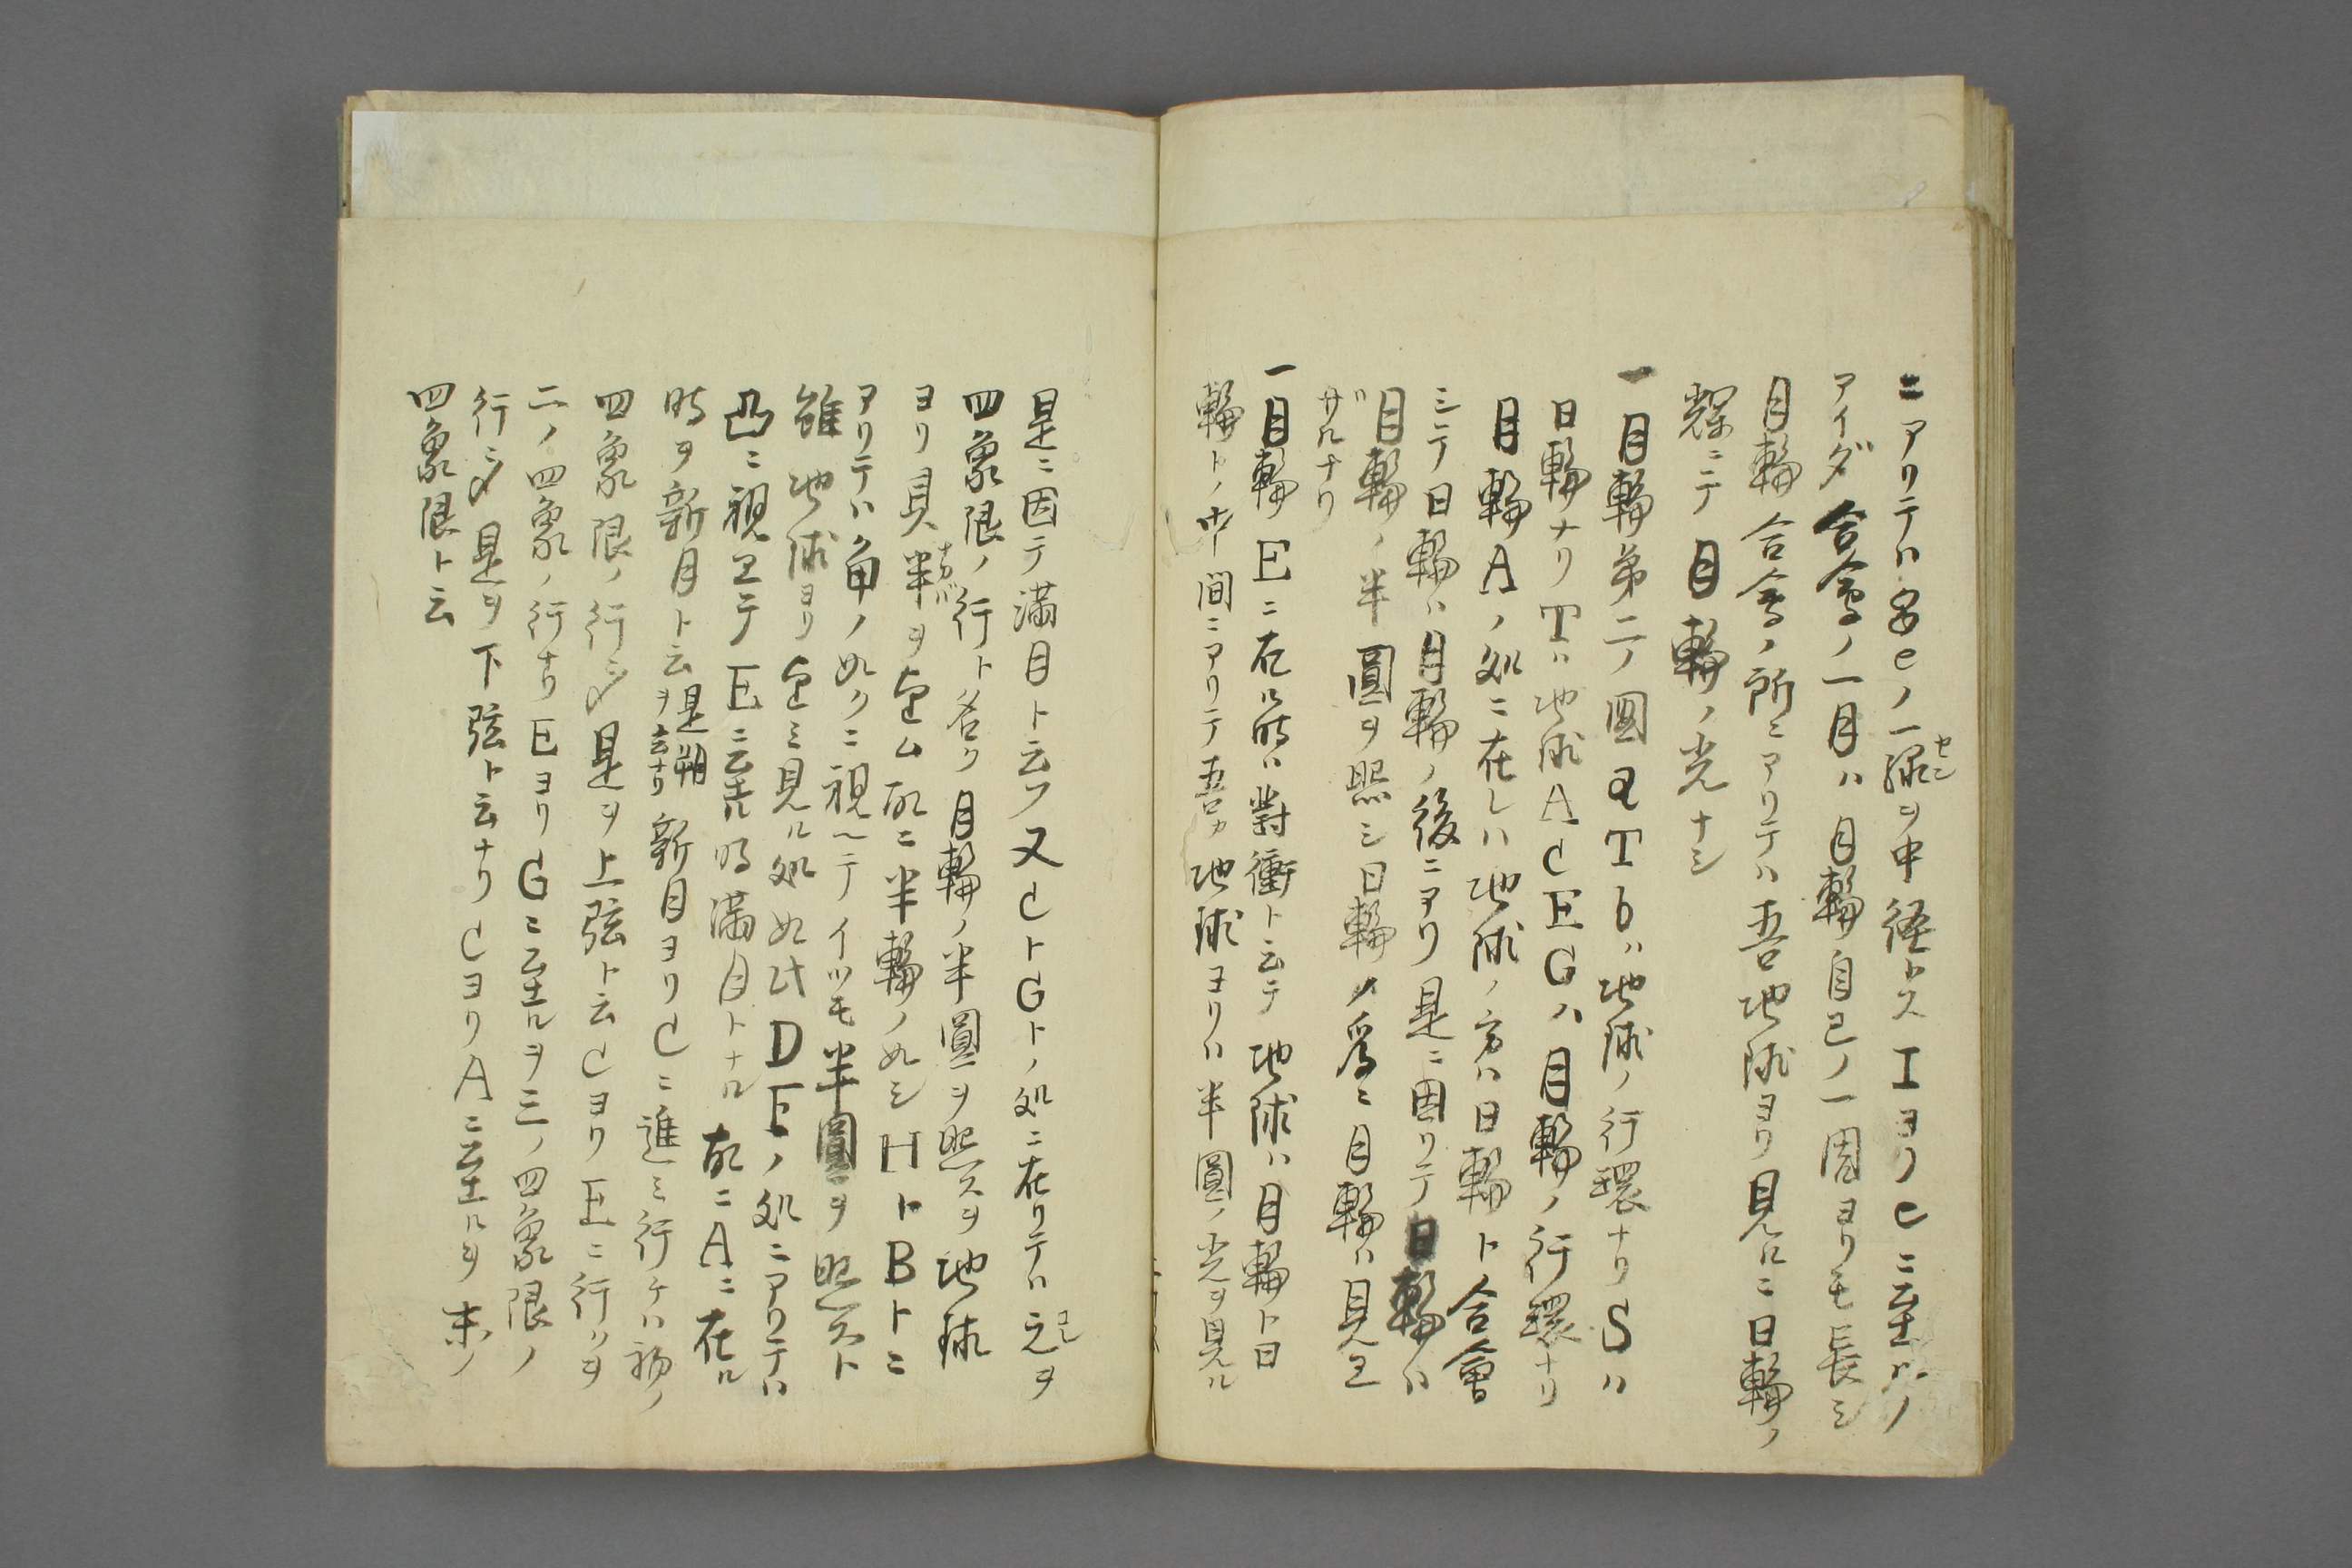 ニアリテハ e ノ一線ヲ中徑トス IヨリCニ至ルノ
アイダ合會ノ一月ハ月輪自己ノ一周ヨリモ長シ
月輪合會ノ所ニアリテハ吾地球ヨリ見ルニ日輪ノ
輝ニテ月輪ノ光ナシ
一月輪第二ノ圖aTbハ地球ノ行環ナリSハ
日輪ナリTハ地球ACEGハ月輪ノ行環ナリ
月輪Aノ処ニ在レハ地球ノ方ハ日輪ト合會
シテ日輪ハ月輪ノ後ニアリ是ニ因リテ日輪ハ
月輪ノ半圓ヲ照シ日輪ノ爲ニ月輪ハ見エ
ザルナリ
一月輪Eニ在ル時ハ對衝ト云テ地球ハ月輪ト日
輪トノ中間ニアリテ吾カ地球ヨリハ半圓ノ光ヲ見ル
是ニ因テ満月ト云フ又CトGトノ処ニ在リテハ之ヲ
四象限ノ行ト名ク月輪ノ半圓ヲ照スヲ地球
ヨリ其半ヲ見ム故ニ半輪ノ如シHトBトニ
アリテハ角ノ如クニ視ヘテイツモ半圓ヲ照スト
雖地球ヨリ 見ル処如此DFノ処ニアリテハ
凸ニ視エテEニ至ル時満月トナル故ニAニ在ル
時ヲ新月ト云是朔ヲ云ナリ新月ヨリCニ進ミ行ケハ初ノ
四象限ノ行ニシテ是ヲ上弦ト云CヨリEニ行クヲ
二ノ四象ノ行ナリEヨリGニ至ルヲ三ノ四象限ノ
行ニシテ是ヲ下弦ト云ナリCヨリAニ至ルヲ末ノ
四象限ト云